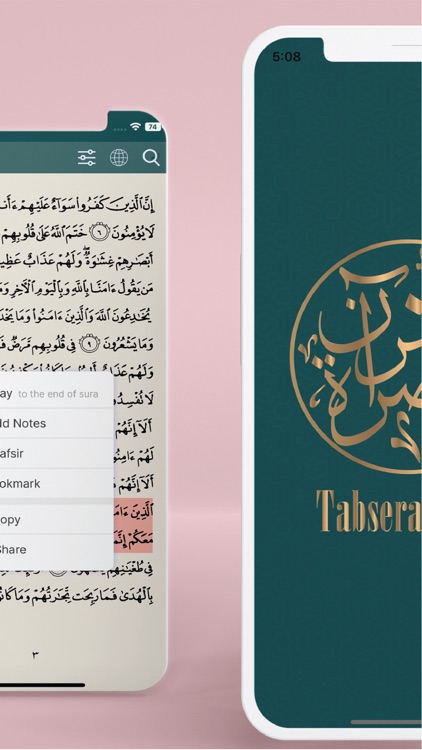 74
إِنَّ ٱلَّذِينَ كَفَرُوا۟ سَوَآءٌ عَلَيْهِمْ ءَأَن
لَا يُؤْمِنُونَ ٦ خَتَمَ ٱللَّهُ عَلَىٰ قُلُوبِهِمْ
أَبْصَٰرِهِمْ غِشَٰوَةٌ وَلَهُمْ عَذَابٌ عَظِي
مَن يَقُولُ ءَامَنَّا بِٱللَّهِ وَبِٱلْيَوْمِ ٱلْءَاخِرِ وَمَ
يُخَٰدِعُونَ ٱللَّهَ وَٱلَّذِينَ ءَامَنُوا۟ وَمَا يَخْدَ
وَمَا يَشْعُرُونَ ٩ فِى قُلُوبِهِم مَّرَضٌ فَ
وَلَهُمْ عَذَابٌ
لَا تُفْسِدُ
أَلَآ إِنَّهُمْ
لَهُمْ ءَامِنُو
أَلَآ إِنَّهُمْ
ٱلَّذِينَ ءَامَ
مَعَكُمْ إِنَّمَ
فِى طُغْيَٰنِهِمْ
بِٱلْهُدَىٰ فَمَا رَبِحَت تِّجَٰرَتُهُمْ وَمَا كَانُ
٣
ay to the end of sura
dd Notes
afsir
okmark
opy
Share
5:08
Tabsera